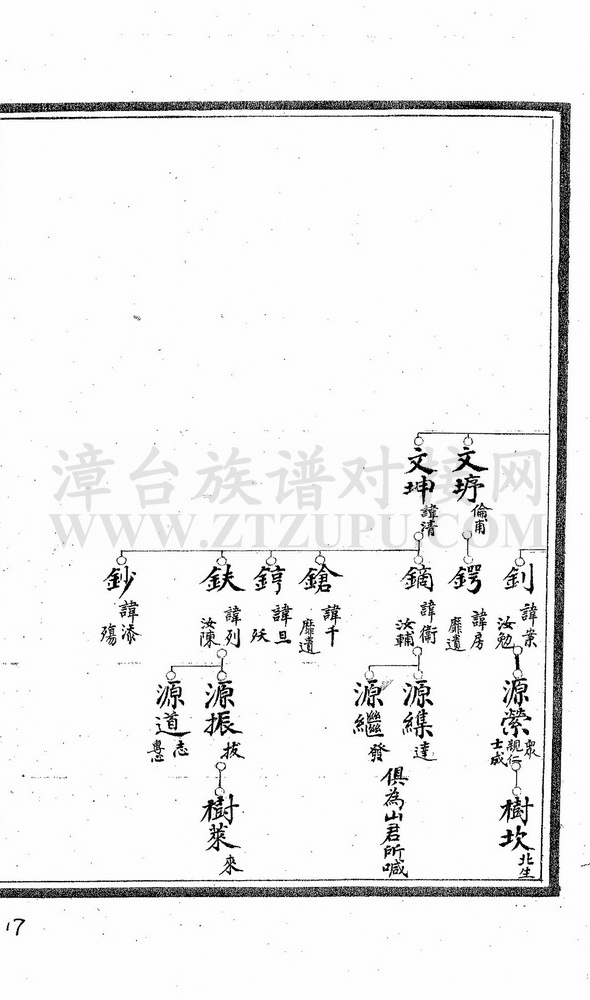 文垿
倫甫
文坤
諱清
釗
諱業
汝勉
鍔
諱房
靡遺
鏑
諱衛
汝輔
鎗
諱千
靡遺
錞
諱旦
殀
鈇
諱列
汝陳
鈔
諱添
殤
源縈
衆
親仁
士成
源集
達
源繼
發
俱為山君所喊
源振
拔
源道
志
樹坎
北生
樹萊
來
17
漳台族谱对接网
WWW.ZTZUPU.COM